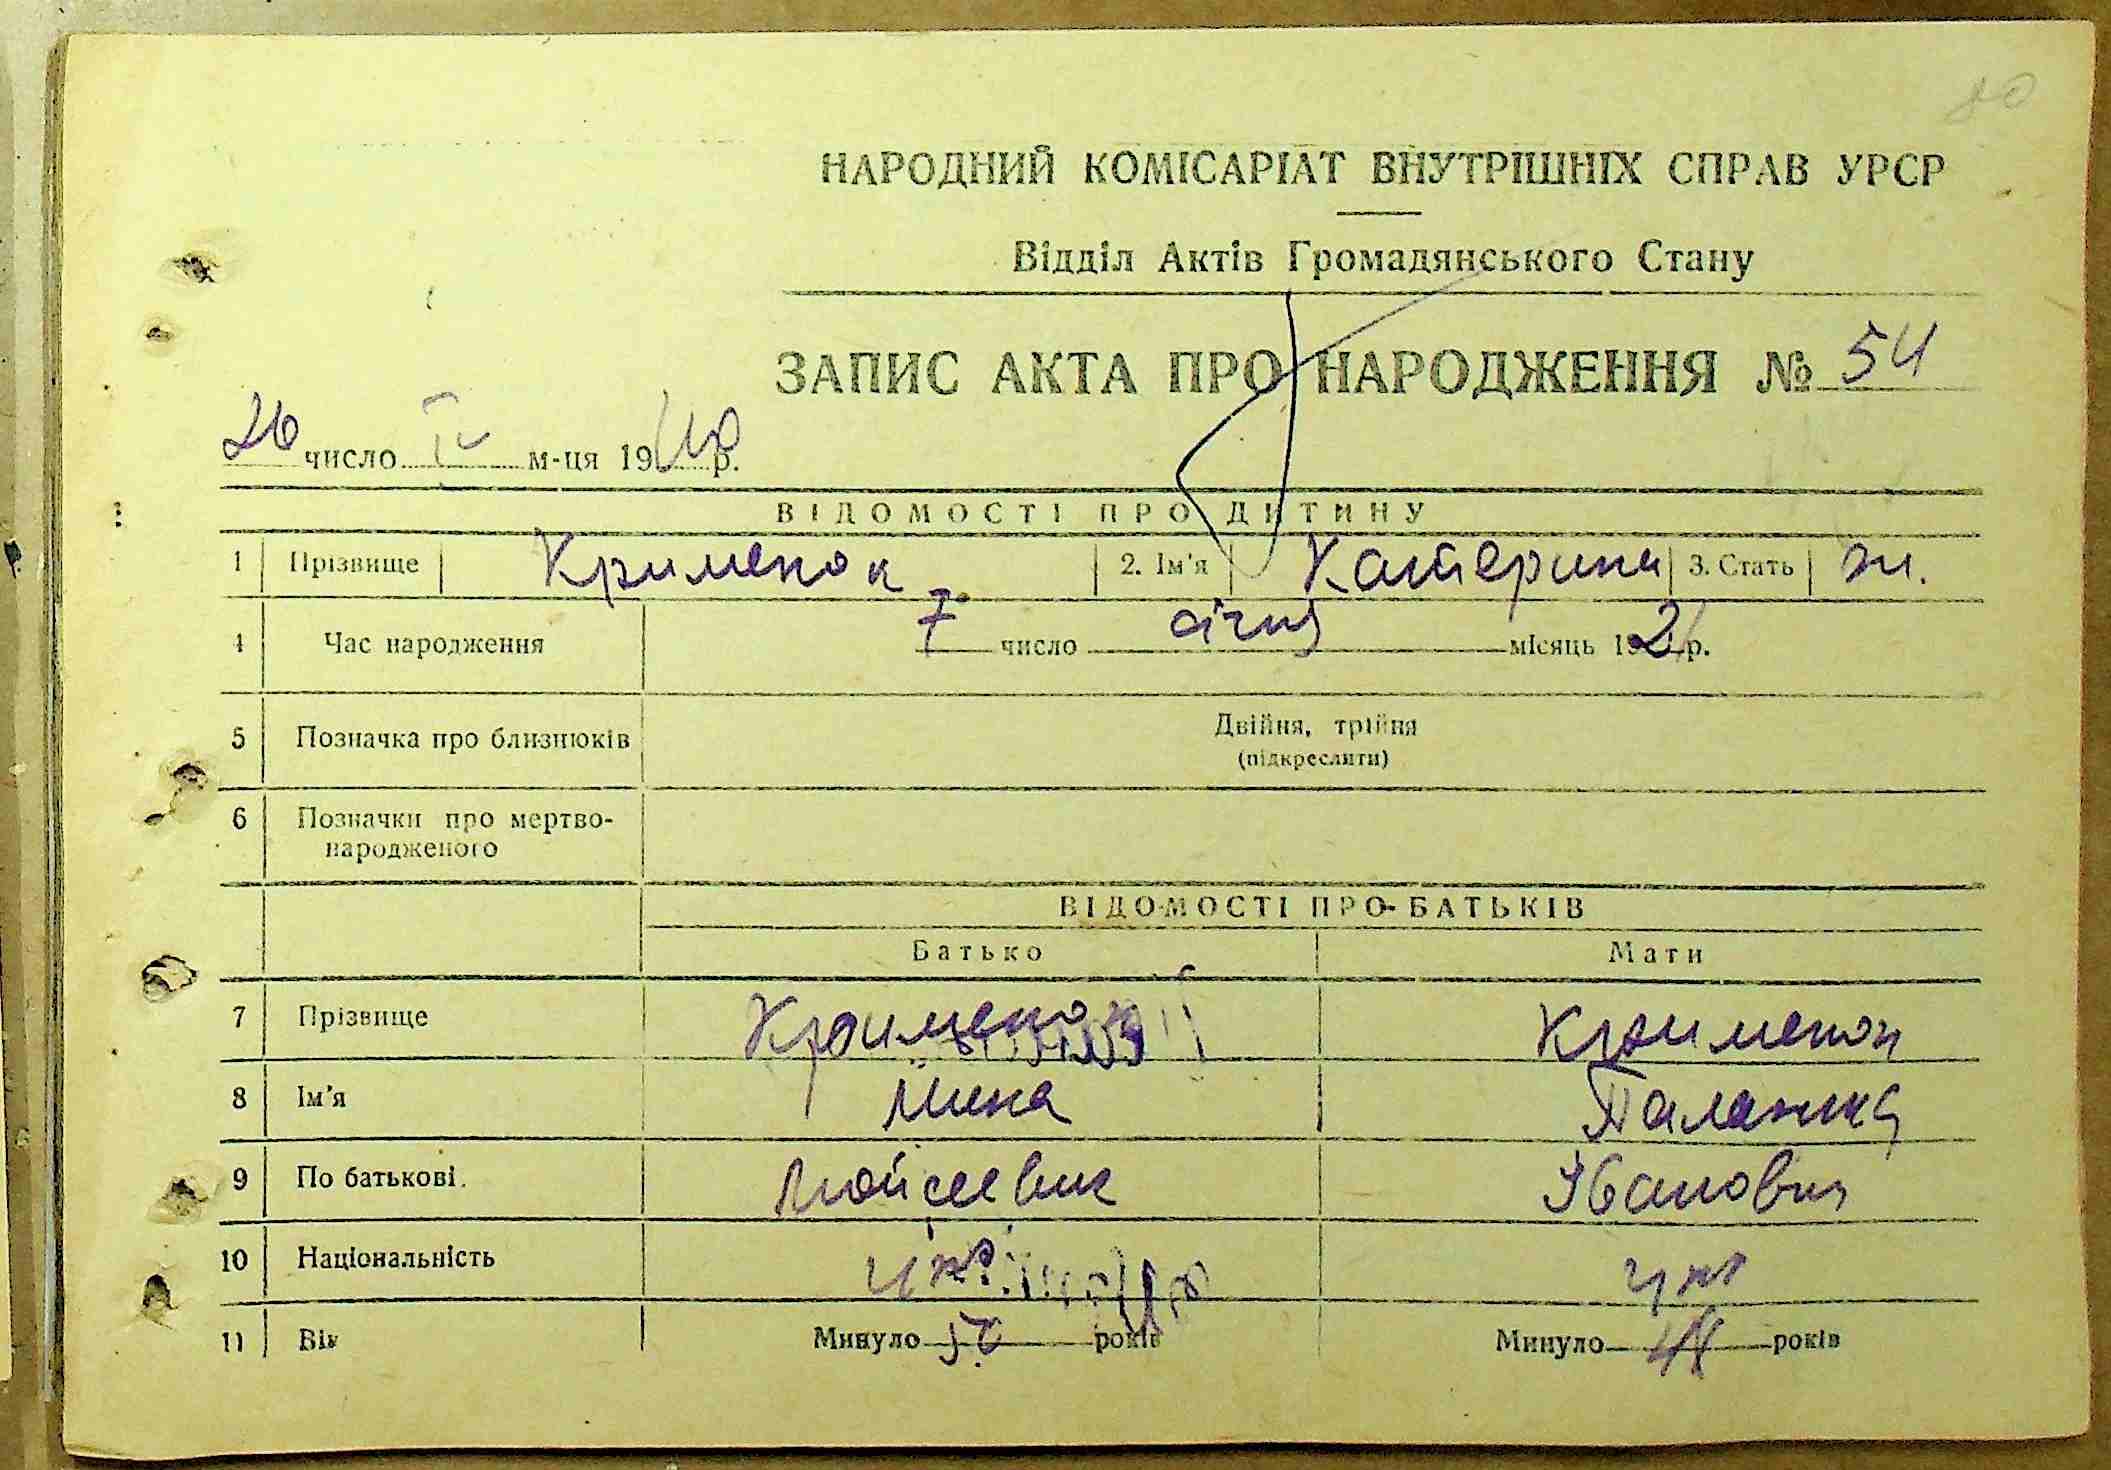 НАРОДНИЙ КОМІСАРІАТ ВНУТРІШНІХ СПРАВ УРСР
Відділ Актів Громадянського Стану
ЗАПИС АКТА ПРО НАРОДЖЕННЯ № 54
26 число IV м-ця 1940 р.
ВІДОМОСТІ ПРО ДИТИНУ
1 Прізвище Крименок 2. Ім'я Катерина 3. Стать ж.
4 Час народження 7 число січня місяць р.
5 Позначка про близнюків Двійня, трійня
(підкреслити)
6 Позначки про мертво-
народженого
ВІДОМОСТІ ПРО БАТЬКІВ
Батько Мати
7 Прізвище Крименок Крименок
8 Ім'я Мина Палажка
9 По батькові Мойсеевич Івановна
10 Національність укр укр
11 Вік Минуло 50 років Минуло 48 років